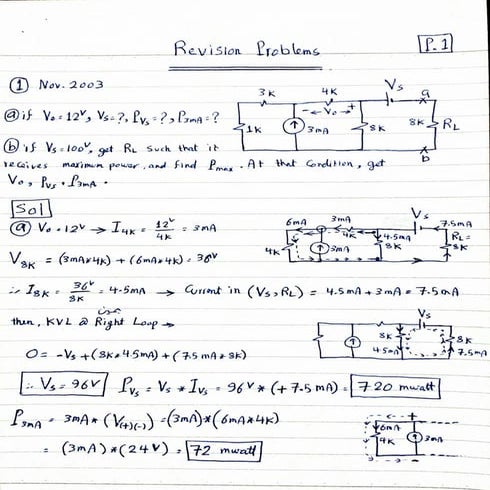 Revision Problems
P.1
① Nov. 2003
ⓐ if Vo = 12V, Vs = ?, PVs = ?, P3mA = ?
ⓑ if Vs = 100V, get RL such that it
receives maximum power, and find Pmax. At that Condition, get
Vo, PVs, P3mA.
3K
4K
Vs
a
- Vo +
1K
3mA
8K
8K
RL
b
Sol
ⓐ Vo = 12V → I4K = 12V/4K = 3mA
V8K = (3mA*4K) + (6mA*4K) = 36V
∴ I8K = 36V/8K = 4.5mA → Current in (Vs, RL) = 4.5mA + 3mA = 7.5mA
6mA
3mA
Vs
7.5mA
4K
4K
3mA
4.5mA
8K
RL =
8K
then, KVL @ Right Loop →
0 = -Vs + (8K*4.5mA) + (7.5mA*8K)
Vs
8K
4.5mA
8K
7.5mA
∴ Vs = 96V
PVs = Vs * IVs = 96V * (+7.5mA) = 720 mwatt
P3mA = 3mA * (V(+)(-)) = (3mA)*(6mA*4K)
= (3mA)*(24V) = 72 mwatt
+
6mA
4K
3mA
-